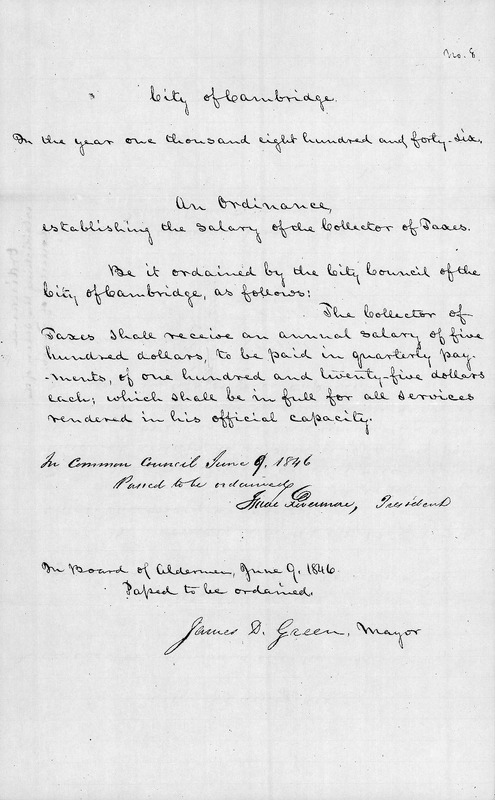 No. 8
City of Cambridge.
In the year one thousand eight hundred and forty-six.
An Ordinance,
establishing the Salary of the Collector of Taxes.
Be it ordained by the City Council of the
City of Cambridge, as follows:
The Collector of
Taxes shall receive an annual salary of five
hundred dollars, to be paid in quarterly pay-
-ments, of one hundred and twenty-five dollars
each; which shall be in full for all services
rendered in his official capacity.
In Common Council June 9, 1846
Passed to be ordained,
Livermore, President
In Board of Aldermen, June 9, 1846.
Passed to be ordained.
James D. Green, Mayor